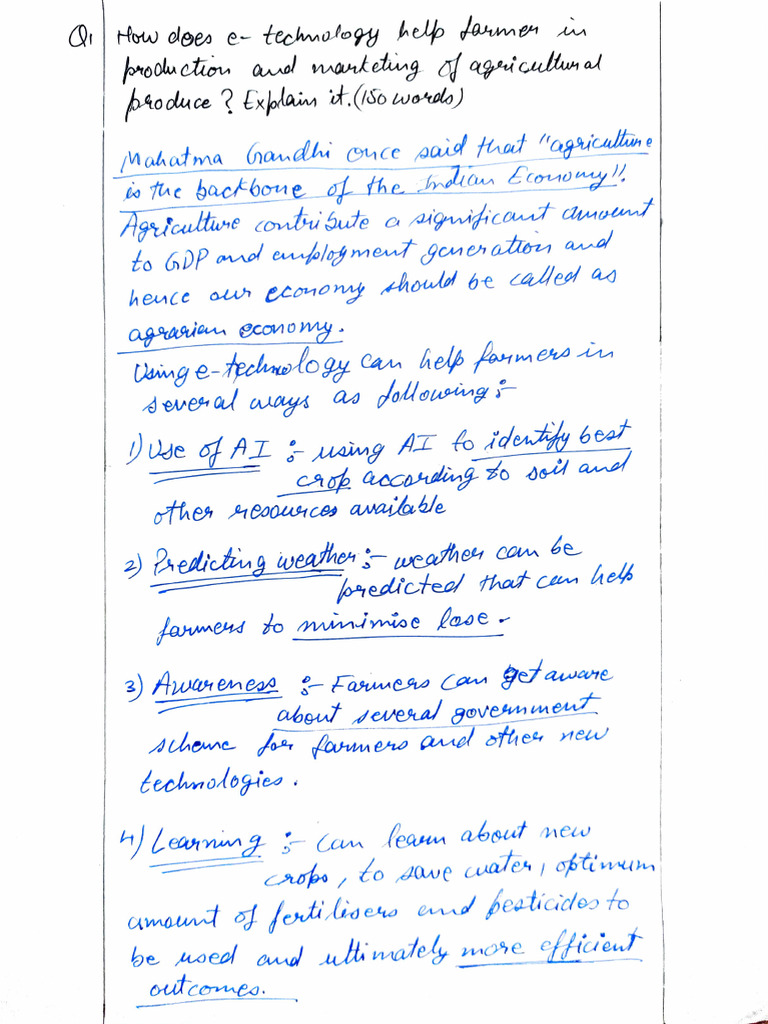 Q1 How does e-technology help farmer in
production and marketing of agricultural
produce? Explain it. (150 words)
Mahatma Gandhi once said that "agriculture
is the backbone of the Indian Economy".
Agriculture contribute a significant amount
to GDP and employment generation and
hence our economy should be called as
agrarian economy.
Using e-technology can help farmers in
several ways as following :-
1) Use of AI :- using AI to identify best
crop according to soil and
other resources available
2) Predicting weather :- weather can be
predicted that can help
farmers to minimise lose.
3) Awareness :- Farmers can get aware
about several government
scheme for farmers and other new
technologies.
4) Learning :- can learn about new
crops, to save water, optimum
amount of fertilisers and pesticides to
be used and ultimately more efficient
outcomes.